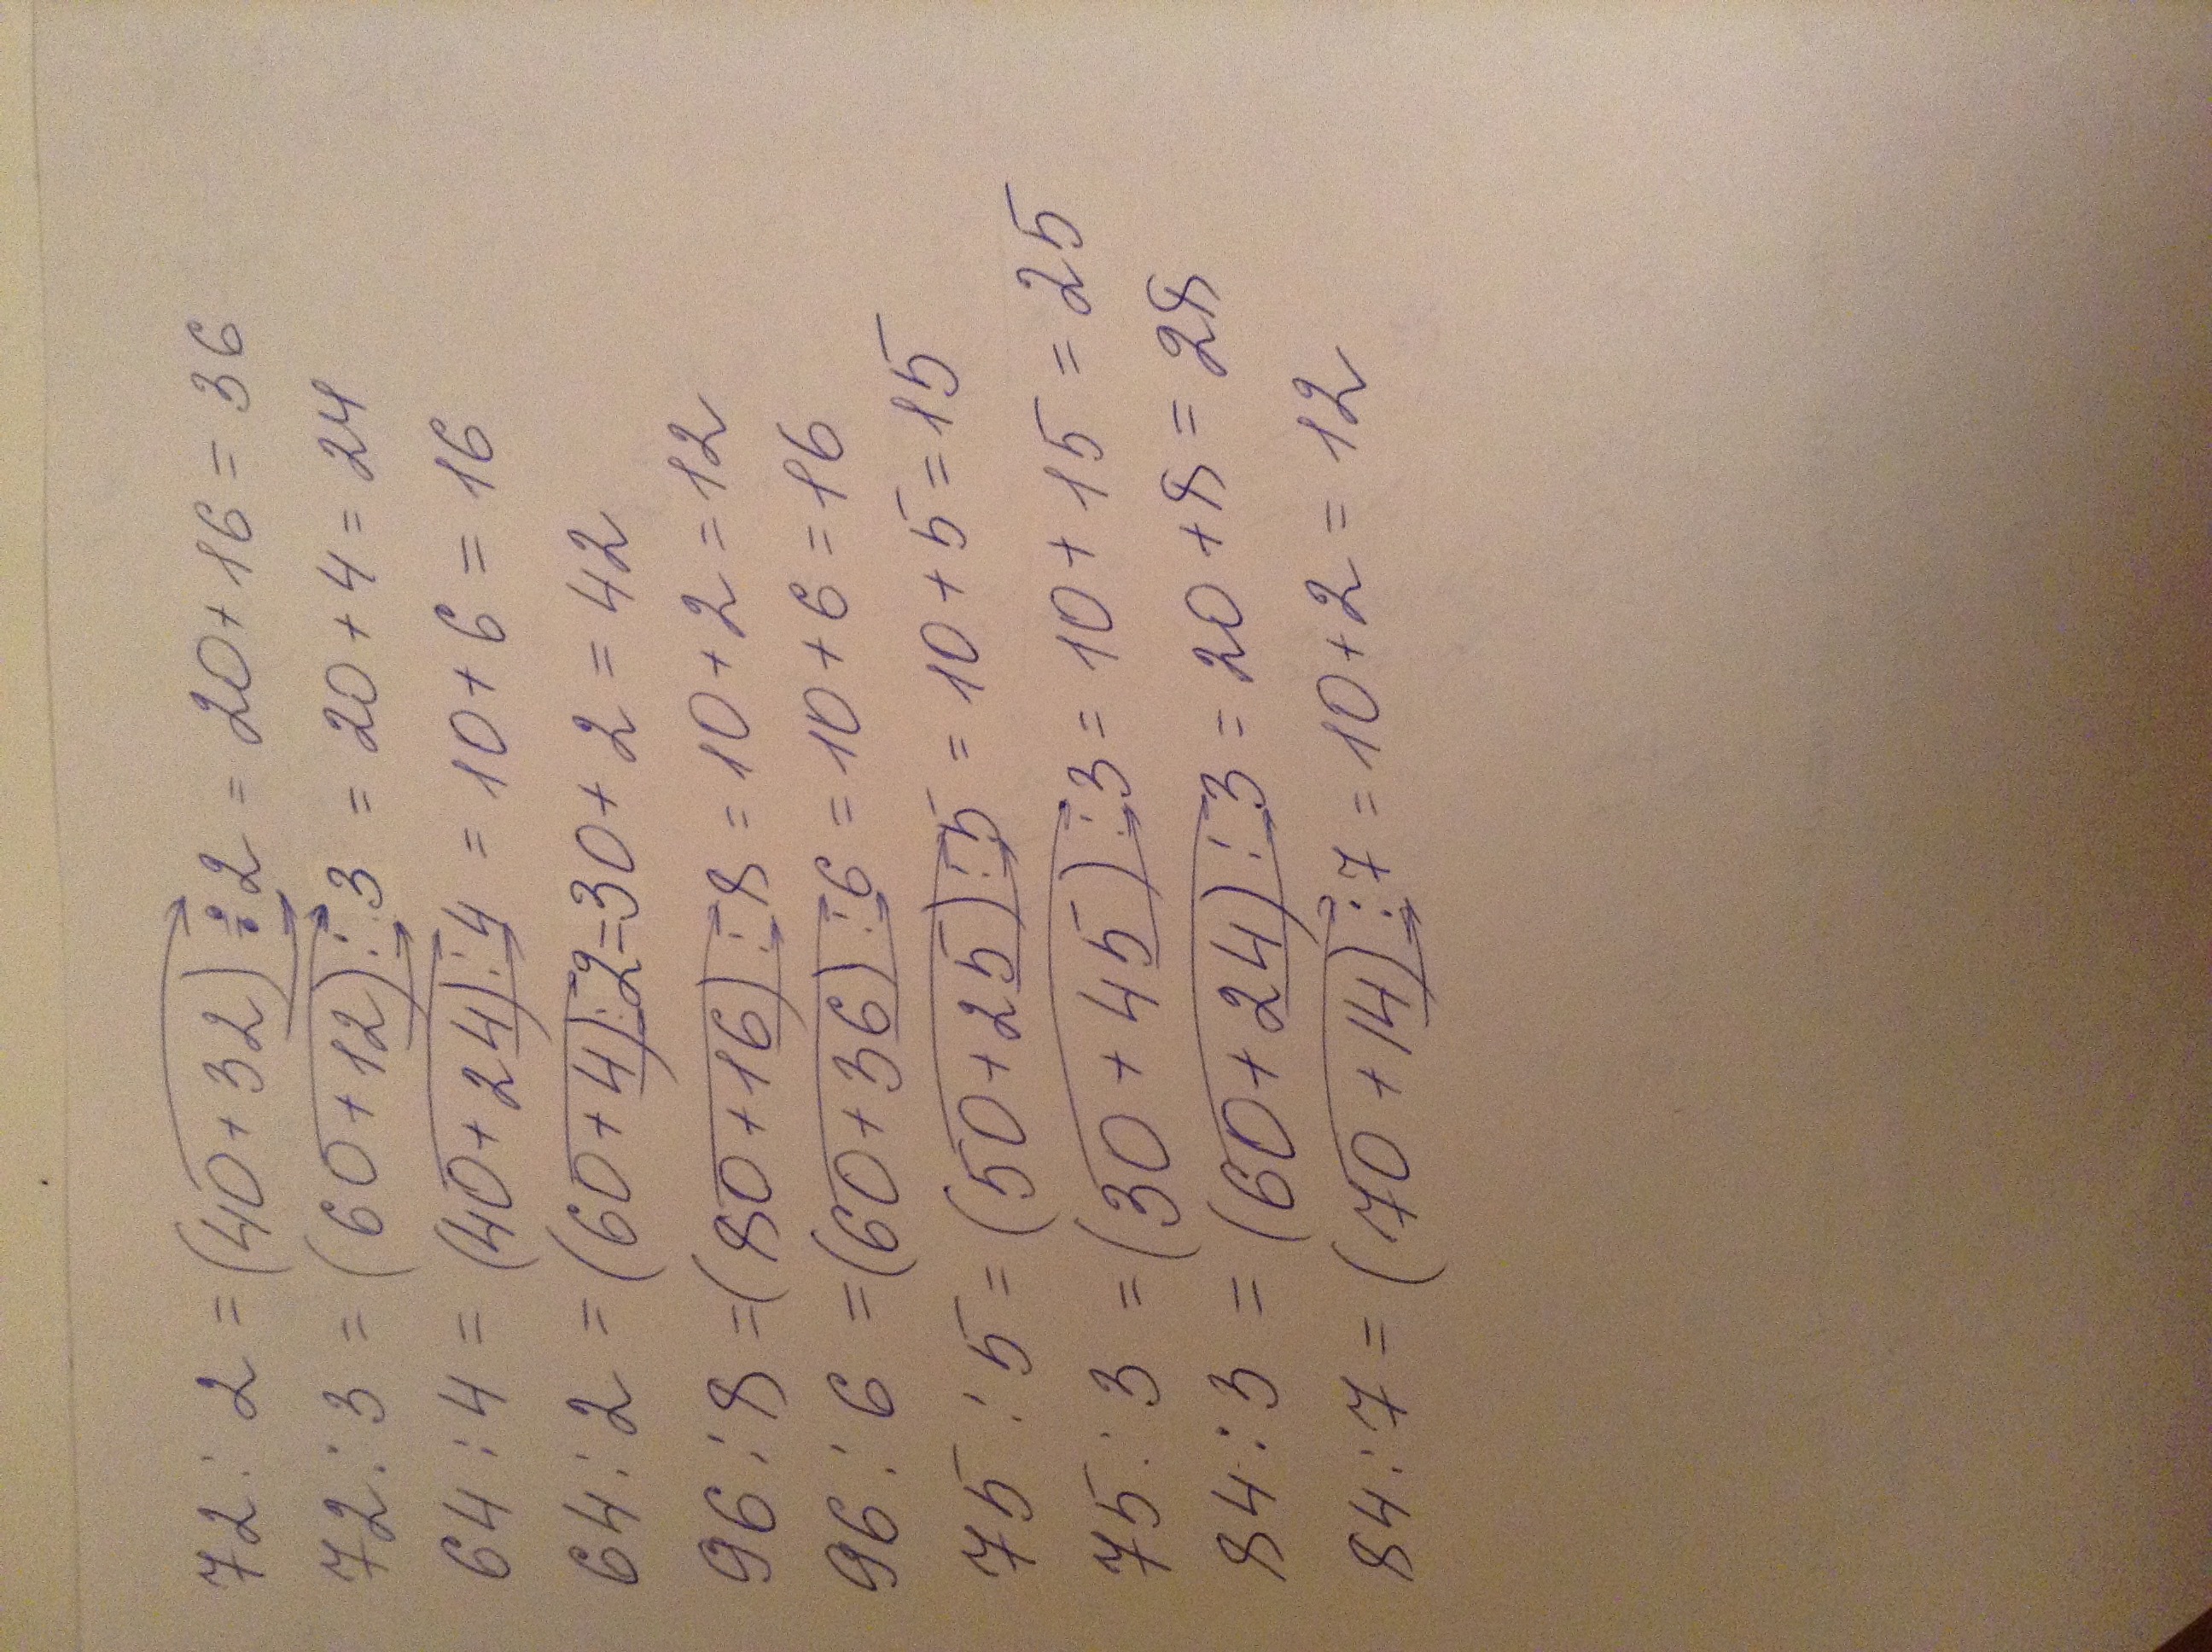 72 : 2 = (40 + 32) : 2 = 20 + 16 = 36
72 : 3 = (60 + 12) : 3 = 20 + 4 = 24
64 : 4 = (40 + 24) : 4 = 10 + 6 = 16
64 : 2 = (60 + 4) : 2 = 30 + 2 = 42
96 : 8 = (80 + 16) : 8 = 10 + 2 = 12
96 : 6 = (60 + 36) : 6 = 10 + 6 = 16
75 : 5 = (50 + 25) : 5 = 10 + 5 = 15
75 : 3 = (30 + 45) : 3 = 10 + 15 = 25
84 : 3 = (60 + 24) : 3 = 20 + 8 = 28
84 : 7 = (70 + 14) : 7 = 10 + 2 = 12